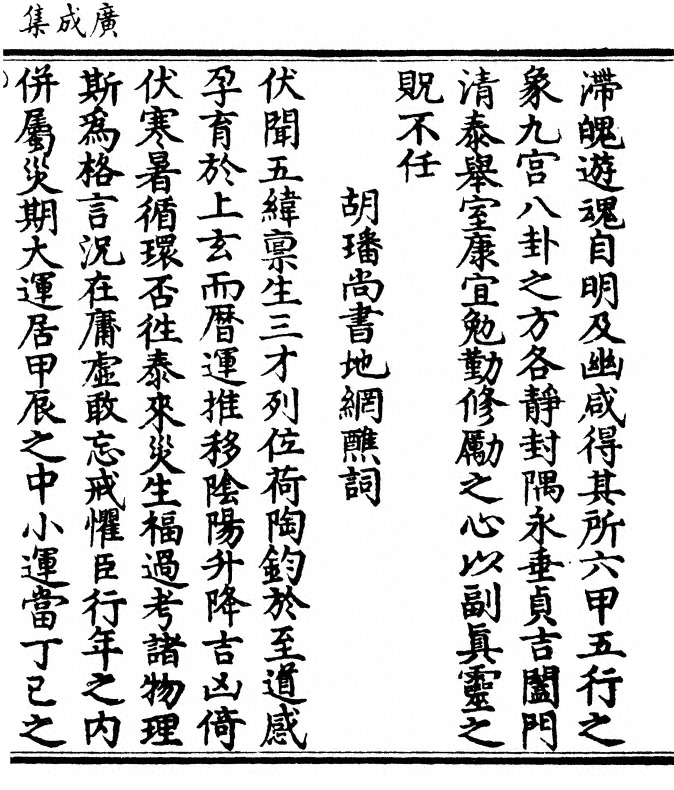 廣成集
滯魄遊魂自明及幽咸得其所六甲五行之
象九宮八卦之方各靜封隅永垂貞吉闔門
清泰舉室康宜勉勤修勵之心以副真靈之
貺不任
胡璠尚書地網醮詞
伏聞五緯禀生三才列位荷陶鈞於至道感
孕育於上玄而曆運推移陰陽升降吉凶倚
伏寒暑循環否徃泰來災生福過考諸物理
斯為格言況在庸虛敢忘戒懼臣行年之内
併屬災期大運居甲辰之中小運當丁巳之